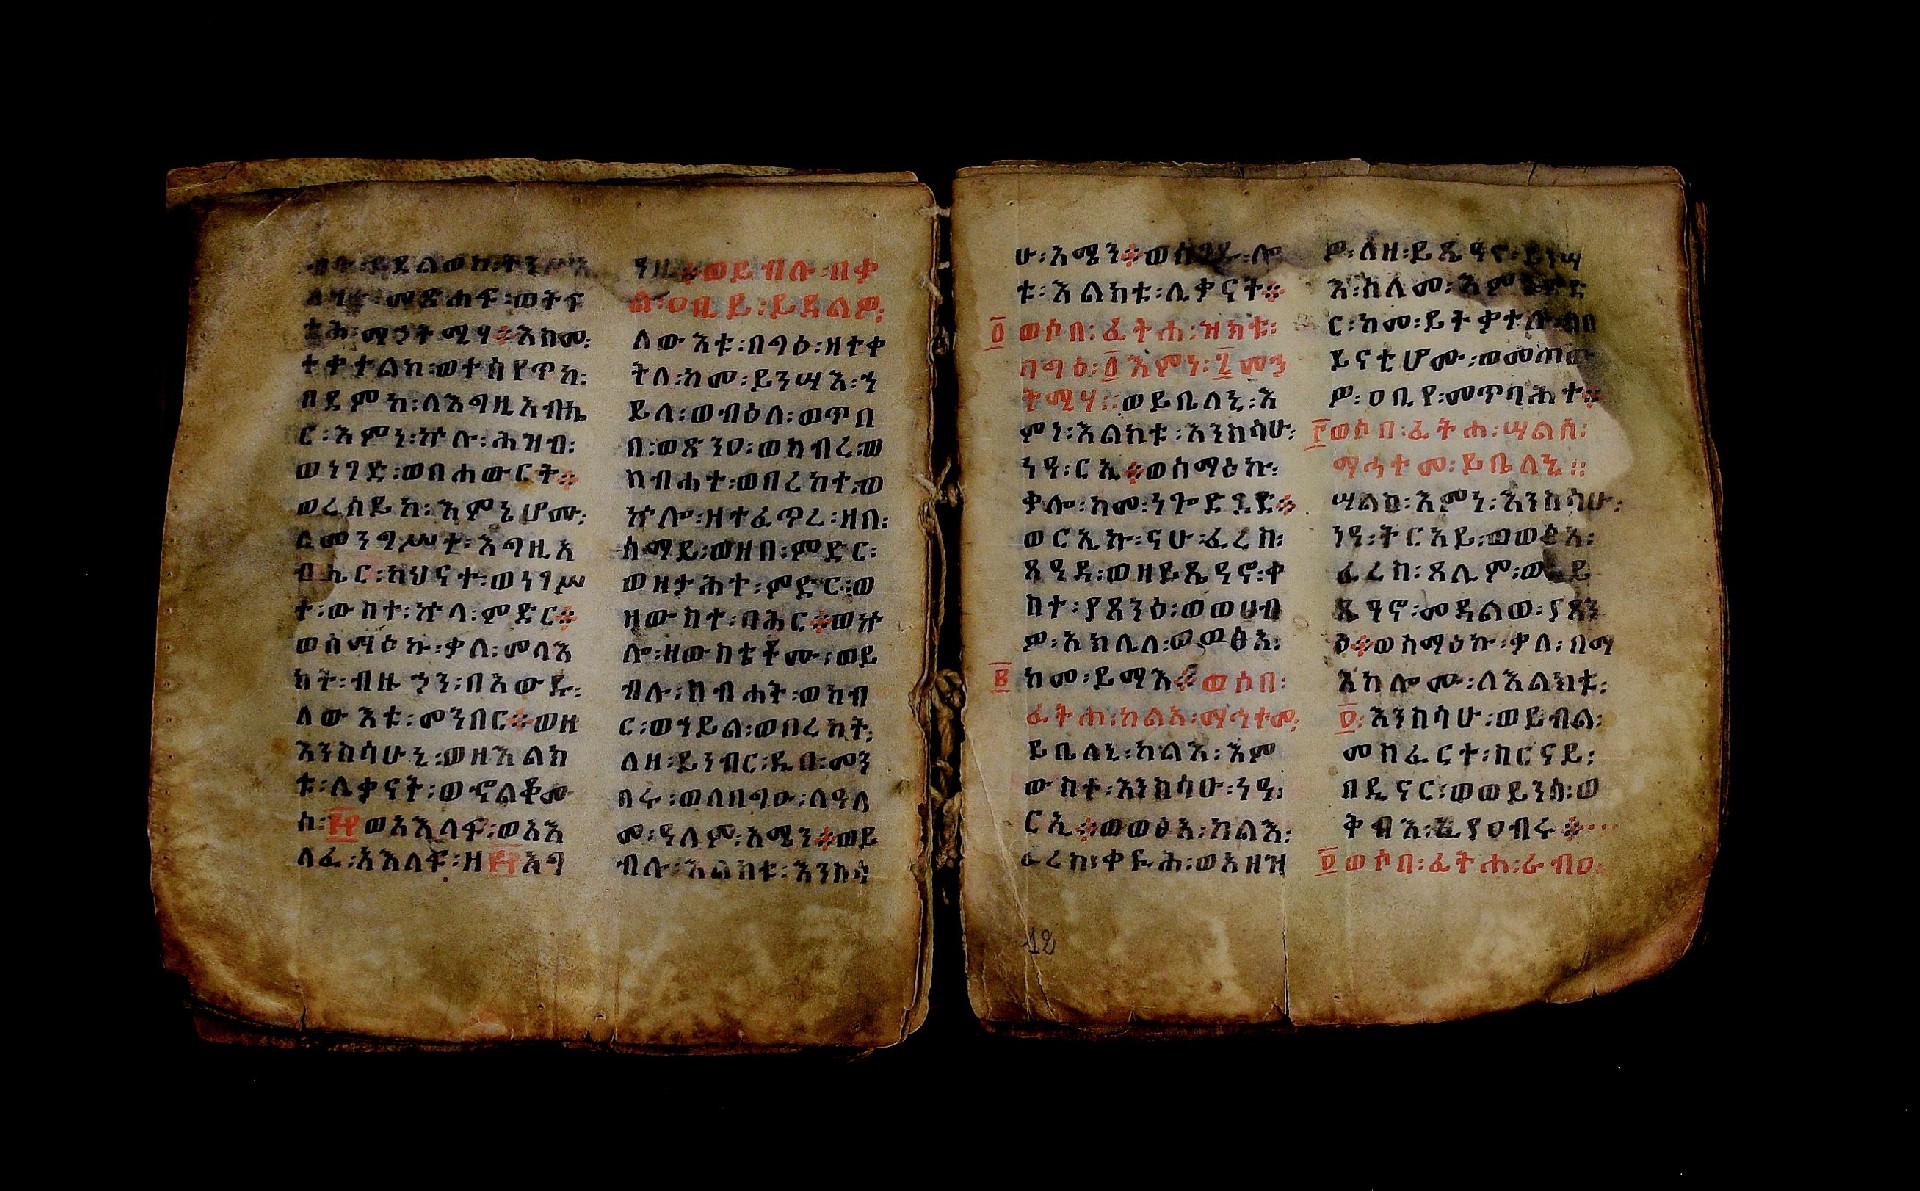 ይደልወከ፡ትንሥእ
ለዛ፡መጽሐፍ፡ወትፍ
ታሕ፡ማኅትሚሃ፨እስመ፡
ተቀተልከ፡ወተሣየጥከ፡
በደምከ፡ለእግዚአብሔ
ር፡እምነ፡ኵሉ፡ሕዝብ፡
ወነገድ፡ወበሐውርት፨
ወረሰይከ፡እምኔሆሙ፡
ለመንግሥተ፡እግዚአ
ብሔር፡ካህናተ፡ወነገሥ
ተ፡ውስተ፡ኵላ፡ምድር፨
ወሰማዕኩ፡ቃለ፡መላእ
ክት፡ብዙኃን፡በአውዱ፡
ለውእቱ፡መንበር፨ወዘ
እንስሳሁኒ፡ወዘእልክ
ቱ፡ሊቃናት፡ወኆልቆሙ
ሰ፡፼ወአእላፍ፡ወአእ
ላፈ፡አእላፍ፡ዘ፼እግ
ንዚ፨ወይብሉ፡በቃ
ል፡ዐቢይ፡ይደልዎ፡
ለውእቱ፡በግዕ፡ዘተቀ
ትለ፡ከመ፡ይንሣእ፡ኀ
ይለ፡ወብዕለ፡ወጥበ
በ፡ወጽንዐ፡ወክብረ፡ወ
ስብሐተ፡ወበረከተ፡ወ
ኵሎ፡ዘተፈጥረ፡ዘበ፡
ሰማይ፡ወዘበ፡ምድር፡
ወዘታሕተ፡ምድር፡ወ
ዘውስተ፡ባሕር፨ወኵ
ሎ፡ዘውስቴቶሙ፡ወይ
ብሉ፡ስብሐት፡ወክብ
ር፡ወኀይል፡ወበረከት፡
ለዘ፡ይነብር፡ዲበ፡መን
በሩ፡ወለበግዑ፡ለዓለ
መ፡ዓለም፡አሜን፨ወይ
ብሉ፡እልክቱ፡እንስሳ
ሁ፡አሜን፨ወሰገዱ፡ሎ
ቱ፡እልክቱ፡ሊቃናት፨
፩ ወሶበ፡ፈትሐ፡ዝክቱ፡
በግዕ፡፩እምነ፡፯መኅ
ትሚሃ፡፡ወይቤለኒ፡እ
ምነ፡እልክቱ፡እንስሳሁ፡
ነዓ፡ርኢ፨ወሰማዕኩ፡
ቃሎ፡ከመ፡ነጐድጓድ፨
ወርኢኩ፡ናሁ፡ፈረስ፡
ጸዓዳ፡ወዘይጼዓኖ፡ቀ
ስተ፡ያጸንዕ፡ወወሀብ
ዎ፡አክሊለ፡ወወፅአ፡
፪ ከመ፡ይማእ፨ወሶበ፡
ፈትሐ፡ካልአ፡ማኅተመ፡
ይቤለኒ፡ካልእ፡እም
ውስተ፡እንስሳሁ፡ነዓ፡
ርኢ፨ወወፅአ፡ካልእ፡
ፈረስ፡ቀይሕ፡ወአዘዝ
ዎ፡ለዘ፡ይጼዓኖ፡ይንሣ
እ፡ሰላመ፡እምድ
ር፡ከመ፡ይትቃተሉ፡በበ
ይናቲሆሙ፡ወመጠው
ዎ፡ዐቢየ፡መጥባሕተ፨
፫ወሶበ፡ፈትሐ፡ሣልሰ፡
ማኅተመ፡ይቤለኒ፡፡
ሣልስ፡እምነ፡እንስሳሁ፡
ነዓ፡ትርአይ፡ወወፅአ፡
ፈረስ፡ጸሊም፡ወዘይ
ጼዓኖ፡መዳልወ፡ያጸን
ዕ፨ወሰማዕኩ፡ቃለ፡በማ
እከሎሙ፡ለእልክቱ፡
፬፡እንስሳሁ፡ወይብል፡
መስፈርተ፡ስርናይ፡
በዲናር፡ወወይንሰ፡ወ
ቅብአ፡ኢየዐብሩ፨
፬ወሶበ፡ፈትሐ፡ራብዐ፡
12